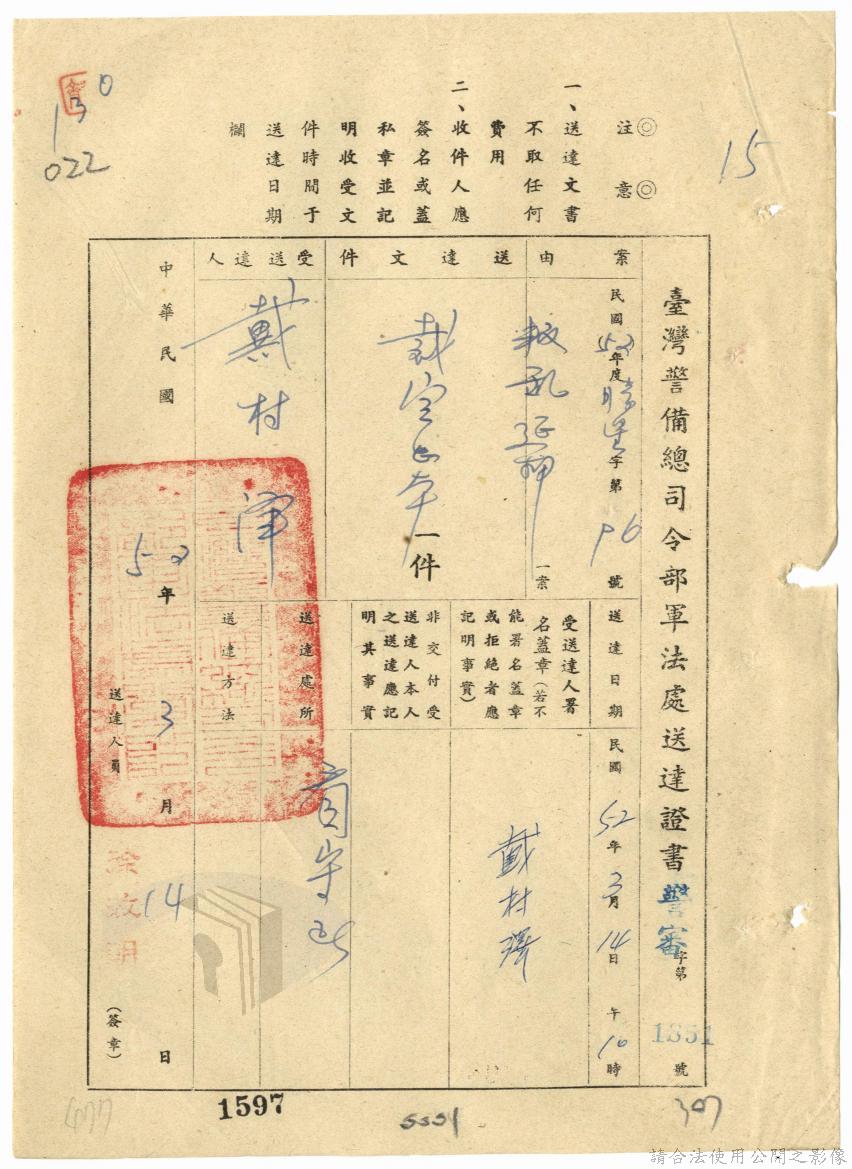 ◎注意◎
一、送達文書
不取任何
費用
二、收件人應
簽名或蓋
私章並記
明收受文
件時間于
送達日期
欄
15
130
022
臺灣警備總司令部軍法處送達證書警審字第1351號
案由
民國52年度
字第
號
叛亂延押
一案
送達文件
裁定正本一件
受送達人
戴村澤
送達日期
民國52年3月14日午10時
受送達人署
名蓋章(若不
能署名蓋章
或拒絕者應
記明事實)
戴村澤
非交付受
送達人本人
之送達應記
明其事實
送達處所
看守所
送達方法
中華民國52年3月14日
送達人員
(簽章)
477
1597
5551
307
請合法使用公開之影像